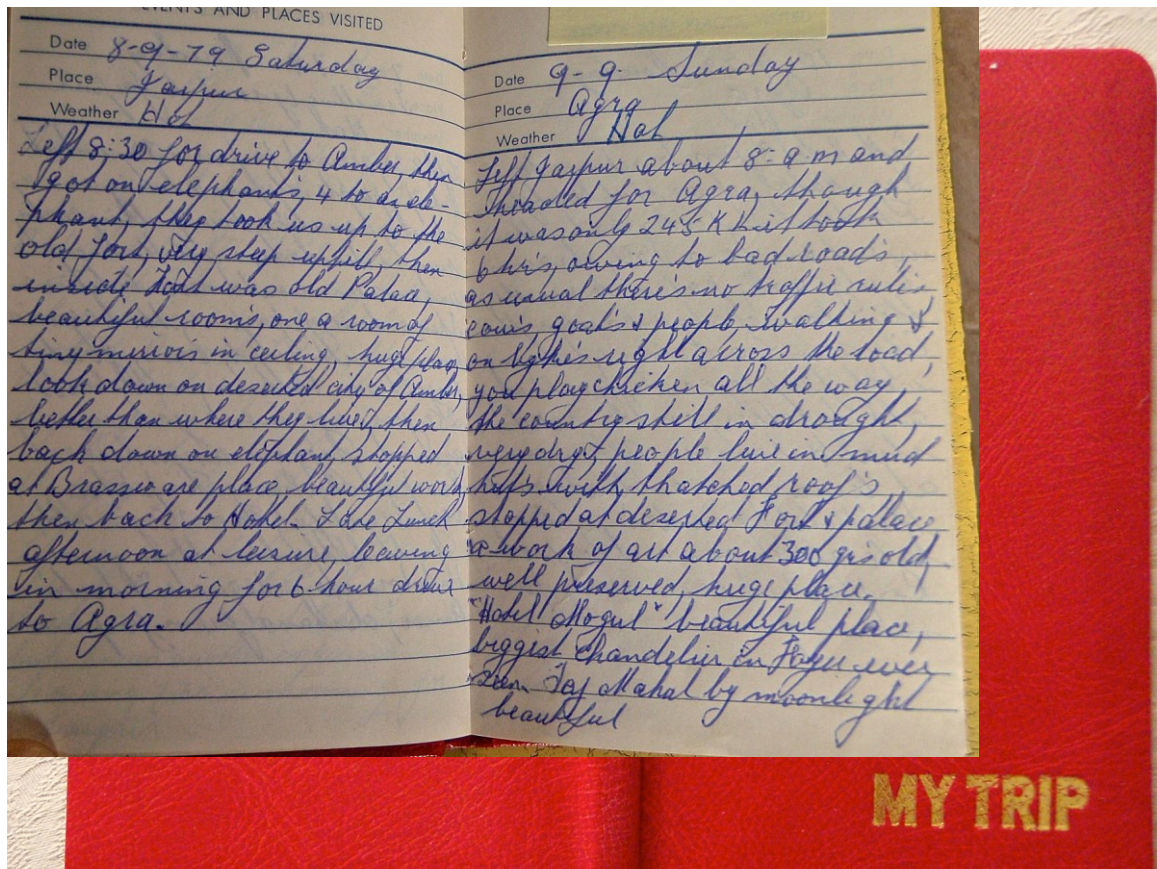 EVENTS AND PLACES VISITED
Date 8-9-79 Saturday
Place Jaipur
Weather Hot
Left 8:30 for drive to Amber, then
got on elephants, 4 to an ele-
phant, they took us up to the
old fort, very steep uphill, then
inside Fort was old Palace,
beautiful rooms, one a room of
tiny mirrors in ceiling, huge place,
look down on deserted city of Amber,
better than where they live, then
back down on elephant, stopped
at Brassware place, beautiful work,
then back to Hotel. Late Lunch
afternoon at leisure, leaving
in morning for 6 hour drive
to Agra.
Date 9-9. Sunday
Place Agra
Weather Hot
Left Jaipur about 8- a.m and
headed for Agra, though
it was only 245 K but took
6 hrs, owing to bad roads,
as usual there's no traffic rules
cows, goats & people walking &
on bykes right across the road
you play chicken all the way,
the country still in drought,
very dry & people live in mud
huts with thatched roof's
stopped at deserted Fort & palace
a work of art about 300 yrs old,
well preserved, huge place.
"Hotel Mogul" beautiful place,
biggest chandelier in Foyer ever
seen. Taj Mahal by moonlight
beautiful
MY TRIP